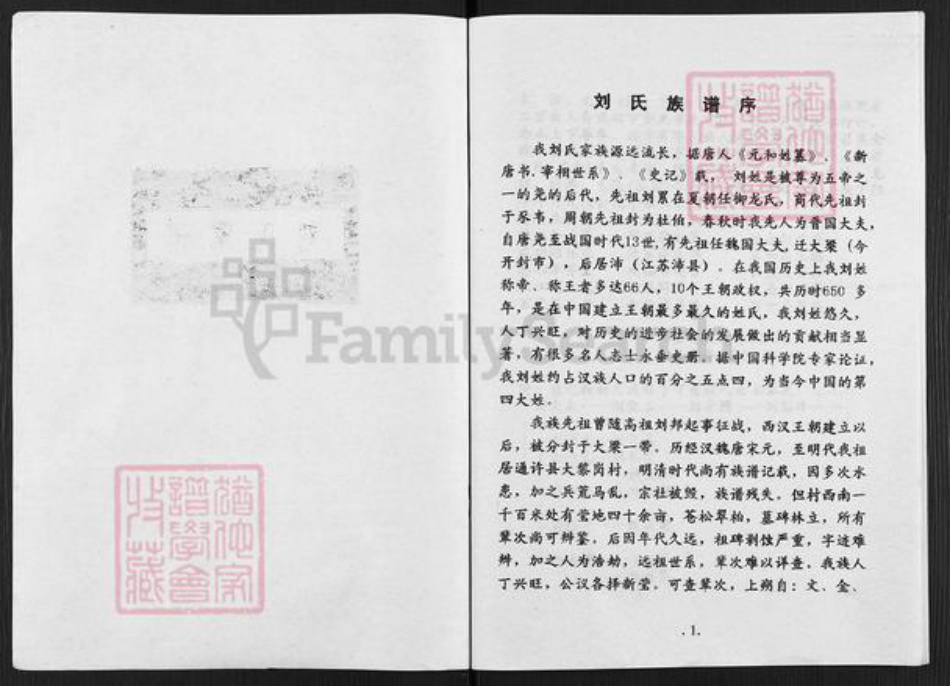 刘氏族谱序
我刘氏家族源远流长，据唐人《元和姓纂》、《新
唐书.宰相世系》、《史记》载， 刘姓是被尊为五帝之
一的尧的后代，先祖刘累在夏朝任御龙氏，商代先祖封
于豕韦，周朝先祖封为杜伯，春秋时我先人为晋国大夫，
自唐尧至战国时代13世，有先祖任魏国大夫，迁大梁（今
开封市），后居沛（江苏沛县）。在我国历史上我刘姓
称帝、称王者多达66人，10个王朝政权，共历时650 多
年，是在中国建立王朝最多最久的姓氏，我刘姓悠久，
人丁兴旺，对历史的进步社会的发展做出的贡献相当显
著，有很多名人志士永垂史册。据中国科学院专家论证，
我刘姓约占汉族人口的百分之五点四，为当今中国的第
四大姓。
我族先祖曾随高祖刘邦起事征战，西汉王朝建立以
后，被分封于大梁一带。历经汉魏唐宋元，至明代我祖
居通许县大黎岗村，明清时代尚有族谱记载，因多次水
患，加之兵荒马乱，宗社被毁，族谱残失。但村西南一
千百米处有茔地四十余亩，苍松翠柏，墓碑林立，所有
辈次尚可辨鉴。后因年代久远，祖碑剥蚀严重，字迹难
辨，加之人为浩劫，远祖世系，辈次难以详查。我族人
丁兴旺，公议各择新茔。可查辈次，上朔自：文、金、
.1.
FamilySearch
猶他家
譜學會
收藏
猶他家
譜學會
收藏